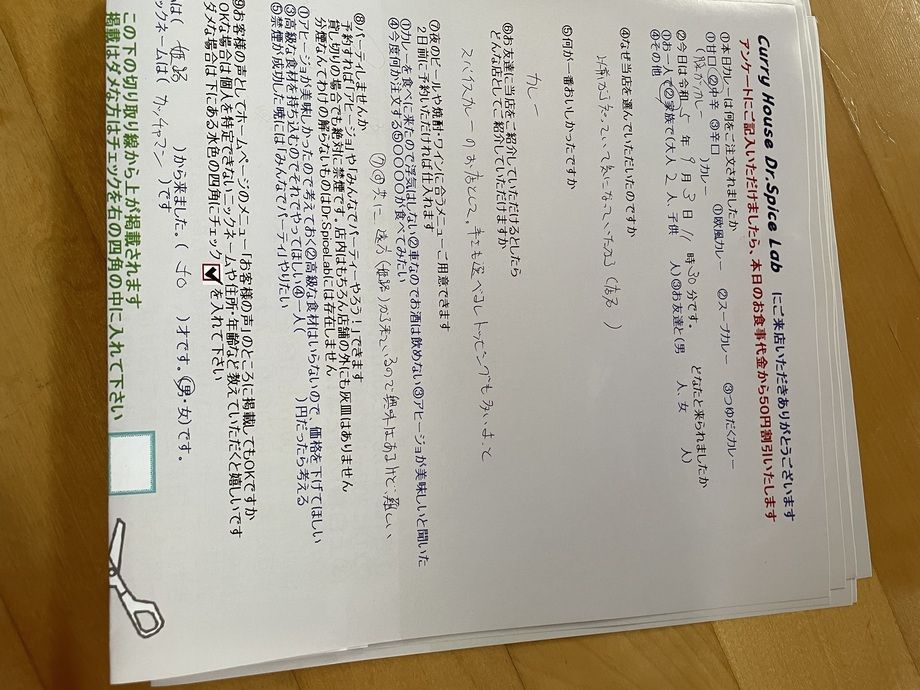 Curry House Dr.Spice Lab にご来店いただきありがとうございます
アンケートにご記入いただけましたら、本日のお食事代金から50円割引いたします
①本日カレーは何をご注文されましたか ①欧風カレー ②スープカレー ③つゆだくカレー
①甘口 ②中辛 ③辛口 )カレー
②今日は令和 5 年 9 月 3 日 11 時 30 分です。 どなたと来られましたか
①お一人で②家族で(大人 2 人、子供 人)③お友達と(男 人、女 人)
④その他
④なぜ当店を選んでいただいたのですか
以前から
⑤何が一番おいしかったですか
カレー
⑥お友達に当店をご紹介していただけるとしたら
どんな店としてご紹介いただけますか
スパイスカレーのお店として。辛さも選べるしトッピングも多いよ、と
⑦夜のビールや焼酎・ワインに合うメニューご用意できます
2日前に予約いただければ仕入れます
①カレーを食べに来たので浮気はしない②車なのでお酒は飲めない③アヒージョが美味しいと聞いた
④今度何か注文する⑤〇〇〇〇が食べてみたい
⑦⑧共に 遠方(姫路)から来ているので興味はあるけど、難しい
⑧パーティしませんか
予約すれば「アヒージョや「みんなでパーティーやろう!」できます
貸し切りの場合でも絶対に禁煙です。店内はもちろん店舗の外にも灰皿はありません
分煙なんてわけの解らないものはDr.SpiceLabには存在しません
①アヒージョが美味しかったので考えておく②高級な食材はいらないので、価格を下げてほしい
③高級な食材を持ち込むのでそれでやってほしい④一人( )円だったら考える
⑤禁煙が成功した暁には「みんなでパーティ」やりたい
⑨お客様の声としてホームページのメニュー「お客様の声」のところに掲載してもOKですか
OKな場合は個人を特定できないニックネームや住所・年齢など教えていただくと嬉しいです
ダメな場合は下にある水色の四角にチェック を入れて下さい
は( 姫路 )から来ました。( 50 )才です。(男・女)です。
ックネームは( カッチャマン )です
この下の切り取り線から上が掲載されます
掲載はダメな方はチェックを右の四角の中に入れて下さい